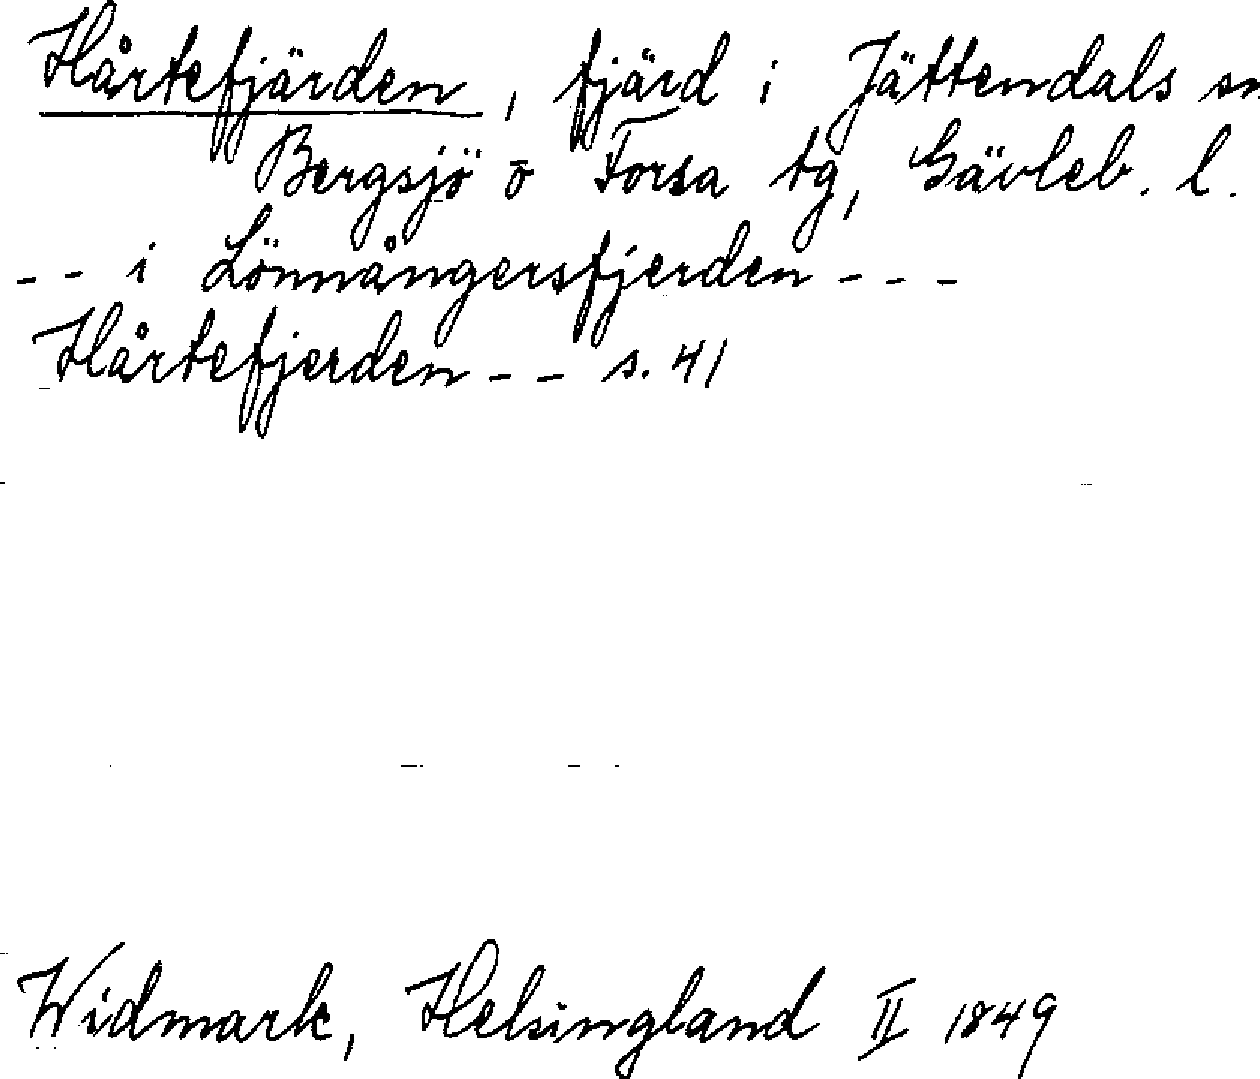 Hårtefjärden, fjärd i Jättendals sn
Bergsjö o Forsa tg, Gävleb. l.
-- i Lönnångersfjerden ---
Hårtefjerden -- s. 41
Widmark, Helsingland II 1849